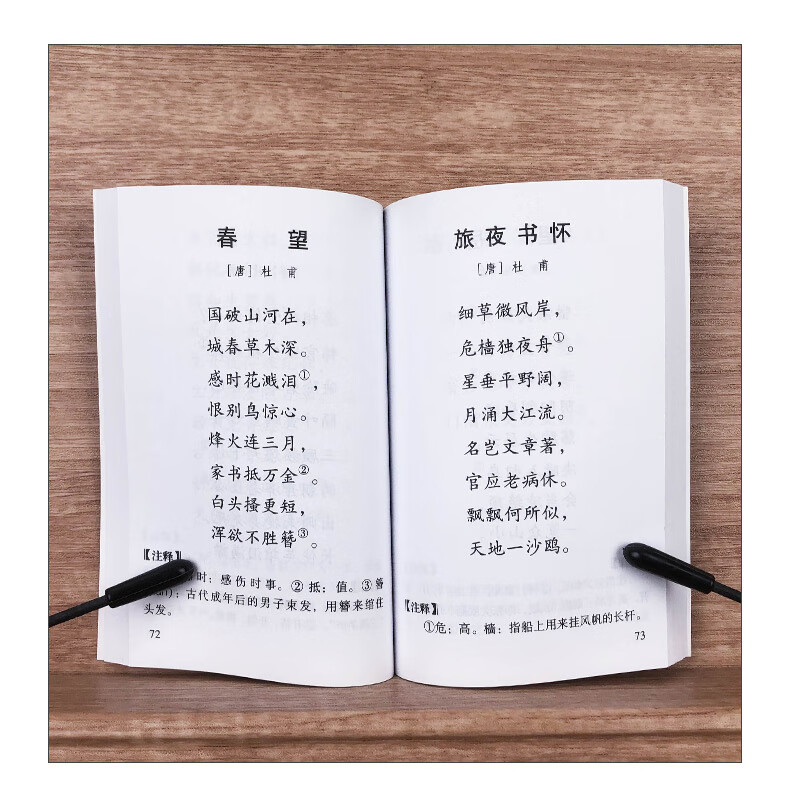 春 望
[唐]杜 甫
国破山河在，
城春草木深。
感时花溅泪①，
恨别鸟惊心。
烽火连三月，
家书抵万金②。
白头搔更短，
浑欲不胜簪③。
【注释】
时：感伤时事。②抵：值。③簪
：古代成年后的男子束发，用簪来绾住
头发。
72
旅夜书怀
[唐]杜 甫
细草微风岸，
危樯独夜舟①。
星垂平野阔，
月涌大江流。
名岂文章著，
官应老病休。
飘飘何所似，
天地一沙鸥。
【注释】
①危：高。樯：指船上用来挂风帆的长杆。
73